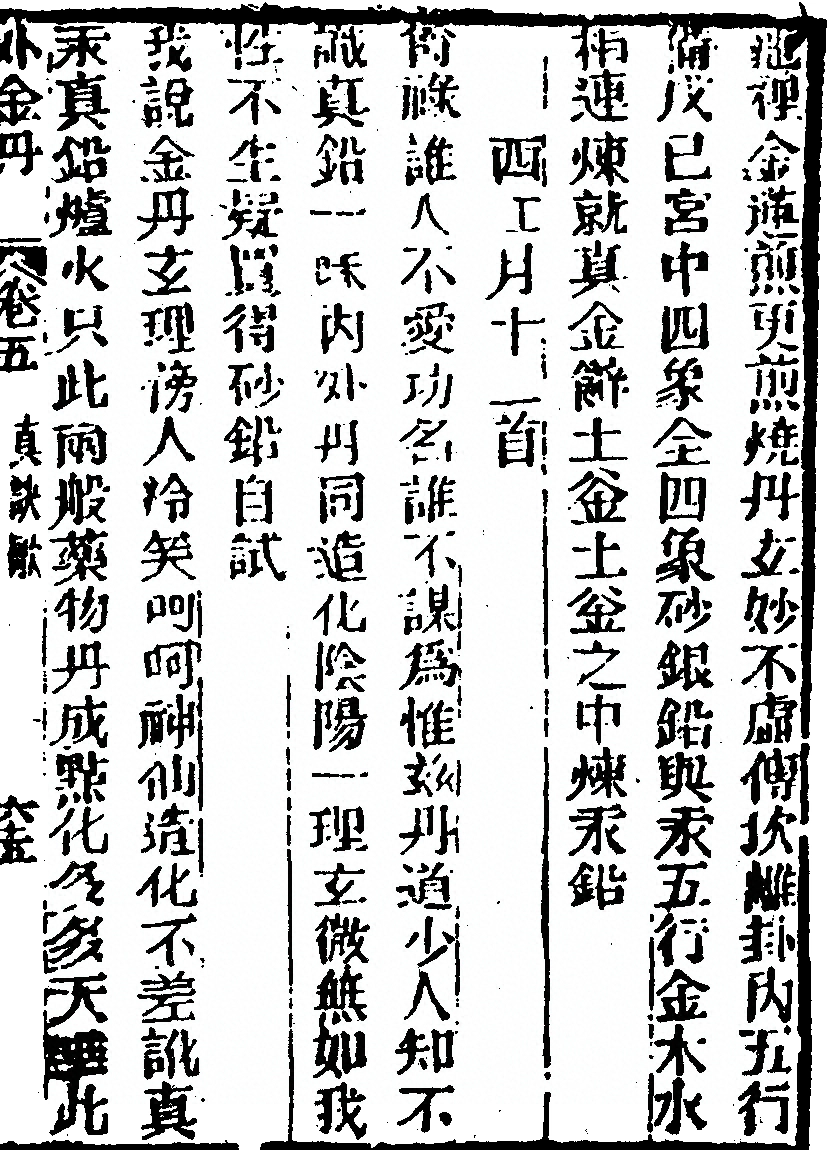 裡金蓮煎更煎燒丹玄妙不虛傳坎離卦內五行
備戊己宮中四象全四象砂銀鉛與汞五行金木水
相連煉就真金辦土釜土釜之中煉汞鉛
四工月十一首
祿誰人不愛功名誰不謀為惟玆丹道少人知不
識真鉛一味內外丹同造化陰陽一理玄微無如我
性不生疑買得砂鉛自試
我說金丹玄理傍人冷笑呵呵神仙造化不差訛真
汞真鉛爐火只此兩般藥物丹成點化多天此
外金丹 卷五 真訣歌 六五